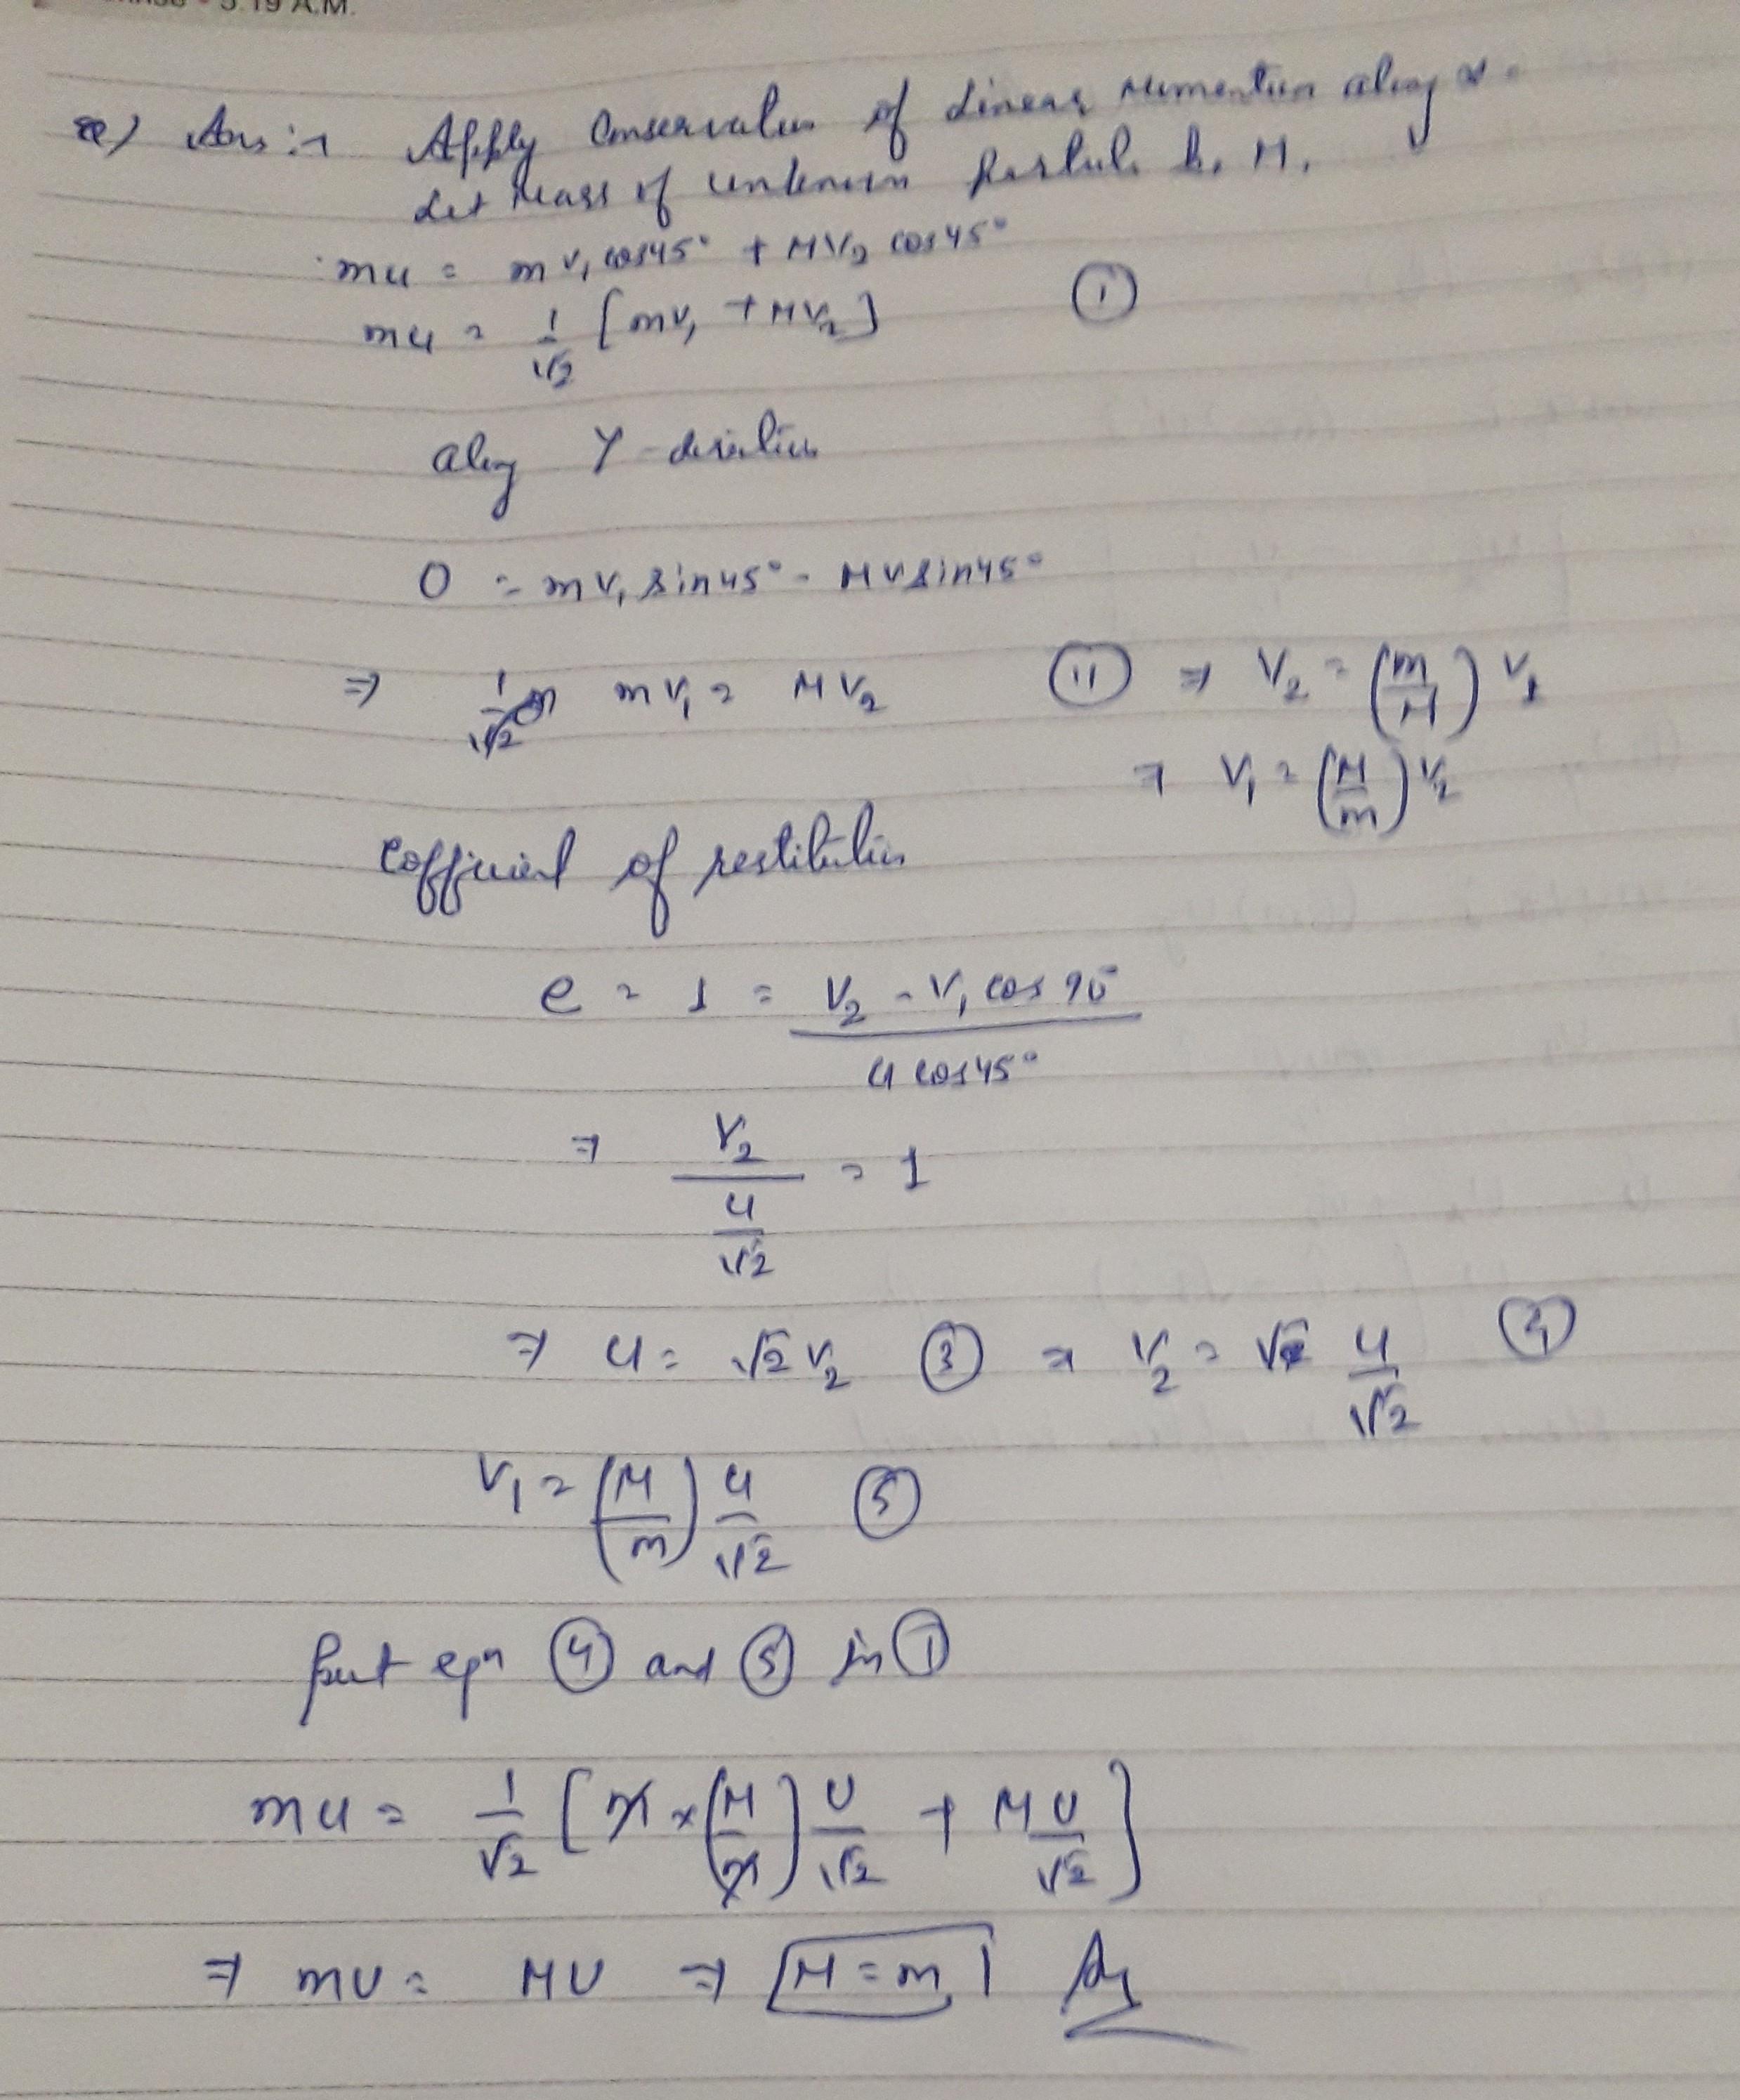 5:19 A.M.
Ans :→ Apply Conservation of Linear Momentum along x-
Let Mass of unknown particle be M.
mu = m v₁ cos45° + M V₂ cos45°
mu = 1/√2 [mv₁ + MV₂] (1)
along Y-direction
0 = m v₁ sin45° - M v sin45°
⇒ mv₁ = MV₂ (11) ⇒ V₂ = (m/M) V₁
⇒ V₁ = (M/m) V₂
Cofficient of restitution
e = 1 = (V₂ - V₁ cos 90°)/(u cos45°)
⇒ V₂/(u/√2) = 1
⇒ u = √2 V₂ (3) ⇒ V₂ = u/√2 (4)
V₁ = (M/m) u/√2 (5)
put eqn (4) and (5) in (1)
mu = 1/√2 [m × (M/m) U/√2 + M U/√2]
⇒ mU = MU ⇒ M = m